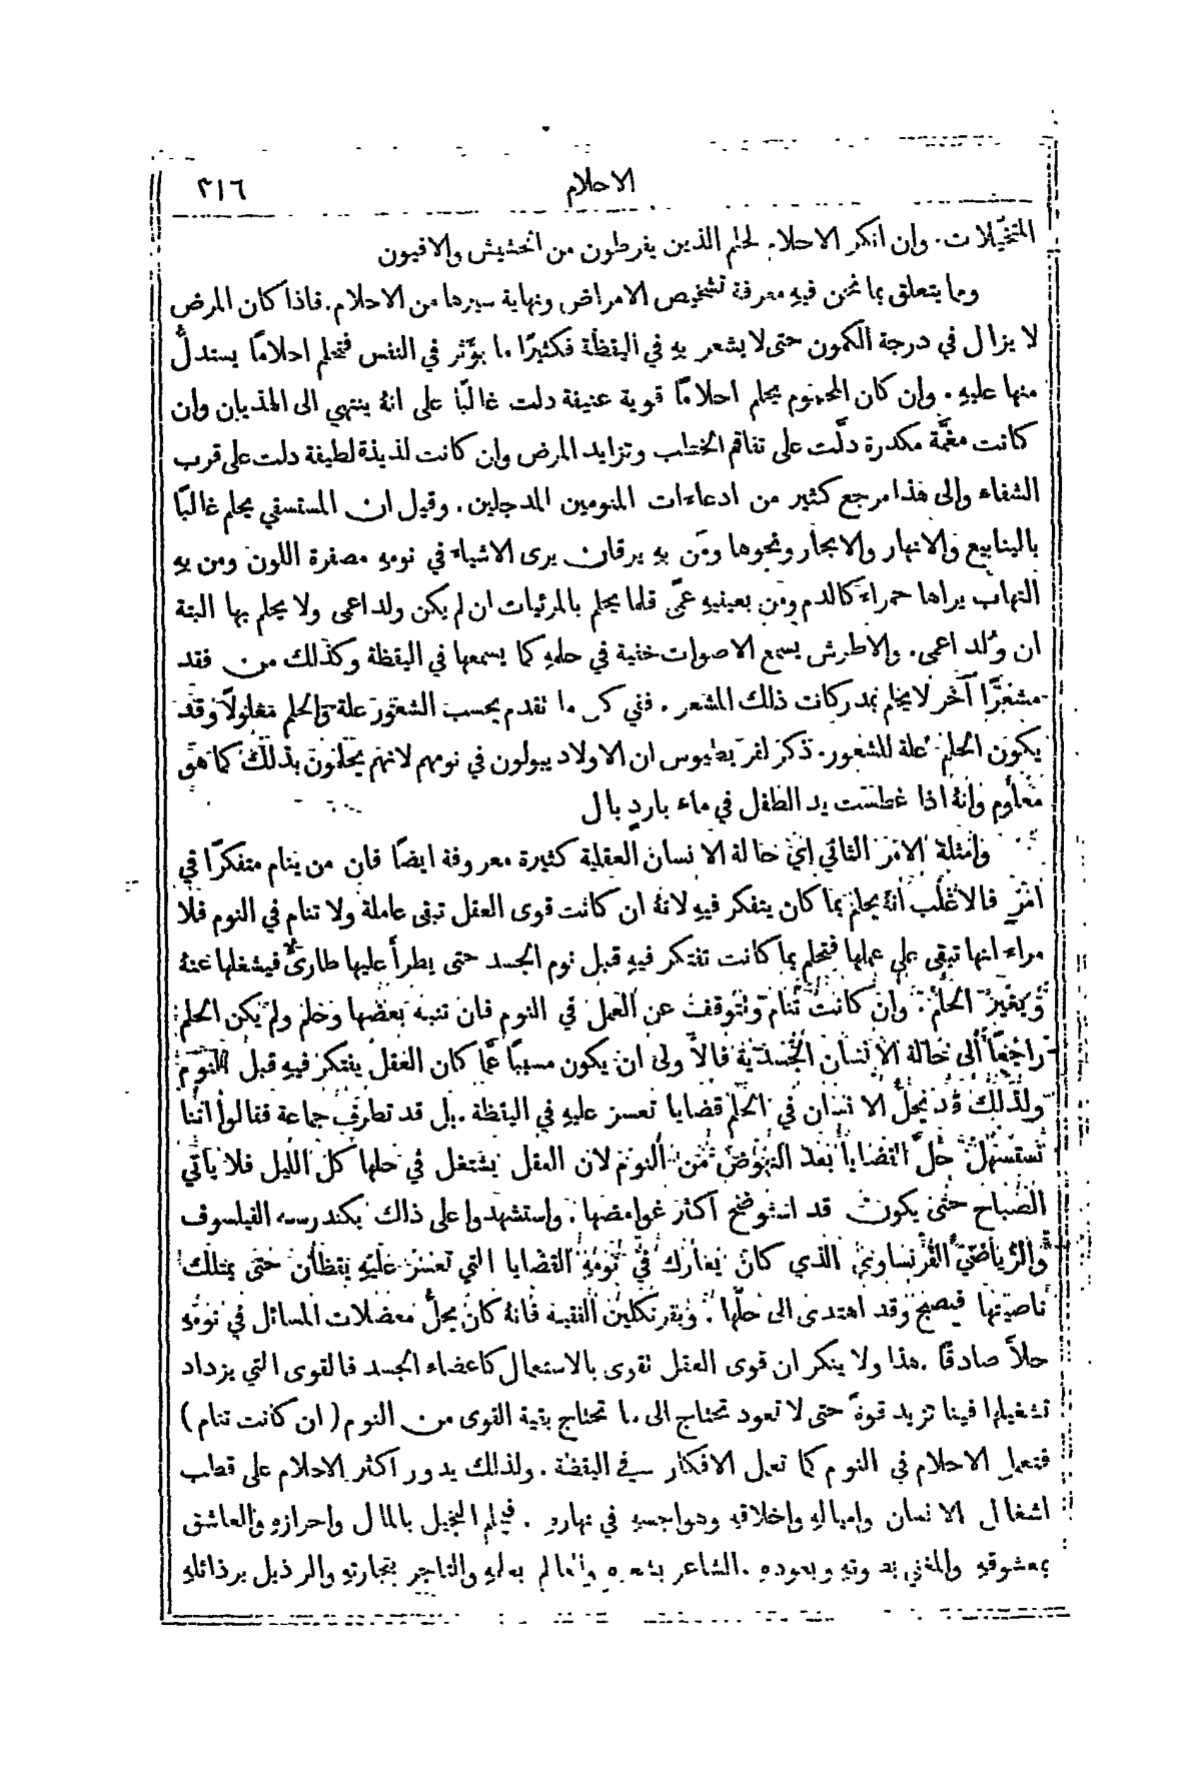 الاحلام ٣١٦
المتخيّلات. وان انكر الاحلام لحلم الذين يفرطون من الحشيش والافيون
ومما يتعلق بما نحن فيهِ معرفة تشخيص الامراض ونهاية سيرها من الاحلام. فاذا كان المرض
لا يزال في درجة الكمون حتى لا يشعر بهِ في اليقظة فكثيرًا ما يؤثر في النفس فتحلم احلامًا يستدلُّ
منها عليهِ. وان كان المحموم يحلم احلامًا قوية عنيفة دلت غالبًا على انهُ ينتهي الى الهذيان وان
كانت مغمَّة مكدرة دلَّت على تفاقم الخطب وتزايد المرض وان كانت لذيذة لطيفة دلت على قرب
الشفاء والى هذا مرجع كثير من ادعاءات المنومين المدجلين. وقيل ان المستسقي يحلم غالبًا
بالينابيع والانهار والابحار ونحوها ومَن بهِ يرقان يرى الاشياء في نومهِ مصفرة اللون ومن بهِ
التهاب يراها حمراء كالدم ومَن بعينيهِ عمًى قلما يحلم بالمرئيات ان لم يكن ولد اعمى ولا يحلم بها البتة
ان وُلد اعمى. والاطرش يسمع الاصوات خفية في حلمهِ كما يسمعها في اليقظة وكذلك من فقد
مشعرًا آخر لا يحلم بمدركات ذلك المشعر. ففي كل ما تقدم يحسب الشعور علة والحلم معلولًا وقد
يكون الحلم علة للشعور. ذكر لفريطيوس ان الاولاد يبولون في نومهم لانهم يحلمون بذلك كما هو
معلوم وانهُ اذا غطست يد الطفل في ماء باردٍ بال
وامثلة الامر الثاني اي حالة الانسان العقلية كثيرة معروفة ايضًا فان من ينام متفكرًا في
امرٍ فالاغلب انهُ يحلم بما كان يتفكر فيهِ لانهُ ان كانت قوى العقل تبقى عاملة ولا تنام في النوم فلا
مراء انها تبقى على عملها فتحلم بما كانت تفتكر فيهِ قبل نوم الجسد حتى يطرأ عليها طارئٌ فيشغلها عنهُ
ويغير الحلم. وان كانت تنام وتتوقف عن العمل في النوم فان تنبه بعضها وحلم ولم يكن الحلم
راجعًا الى حالة الانسان الجسدية فالاولى ان يكون مسببًا عمَّا كان العقل يفتكر فيهِ قبل النوم
ولذلك قد يحلُّ الانسان في الحلم قضايا تعسر عليهِ في اليقظة. بل قد تطرف جماعة فقالوا اننا
نستسهل حلَّ القضايا بعد النهوض من النوم لان العقل يشتغل في حلها كل الليل فلا يأتي
الصباح حتى يكون قد استوضح اكثر غوامضها. واستشهدوا على ذلك بكندرسه الفيلسوف
والرياضي الفرنساوي الذي كان يعارك في نومهِ القضايا التي تعسر عليهِ يقظان حتى يمتلك
ناصيتها فيصبح وقد اهتدى الى حلّها. وبفرنكلين الفقيه فانهُ كان يحلُّ معضلات المسائل في نومهِ
حلاًّ صادقًا. هذا ولا ينكر ان قوى العقل تقوى بالاستعمال كاعضاء الجسد فالقوى التي يزداد
تشغيلها فينا تزيد قوةً حتى لا تعود تحتاج الى ما تحتاج بقية القوى من النوم (ان كانت تنام)
فتعمل الاحلام في النوم كما تعمل الافكار في اليقظة. ولذلك يدور اكثر الاحلام على قطب
اشغال الانسان واميالهِ واخلاقهِ وهواجسهِ في نهارهِ. فيحلم البخيل بالمال واحرازهِ والعاشق
بمعشوقهِ والمغني بصوتهِ وبعودهِ. الشاعر بشعرهِ والعالم بعلمهِ والتاجر بتجارتهِ والرذيل برذائلهِ